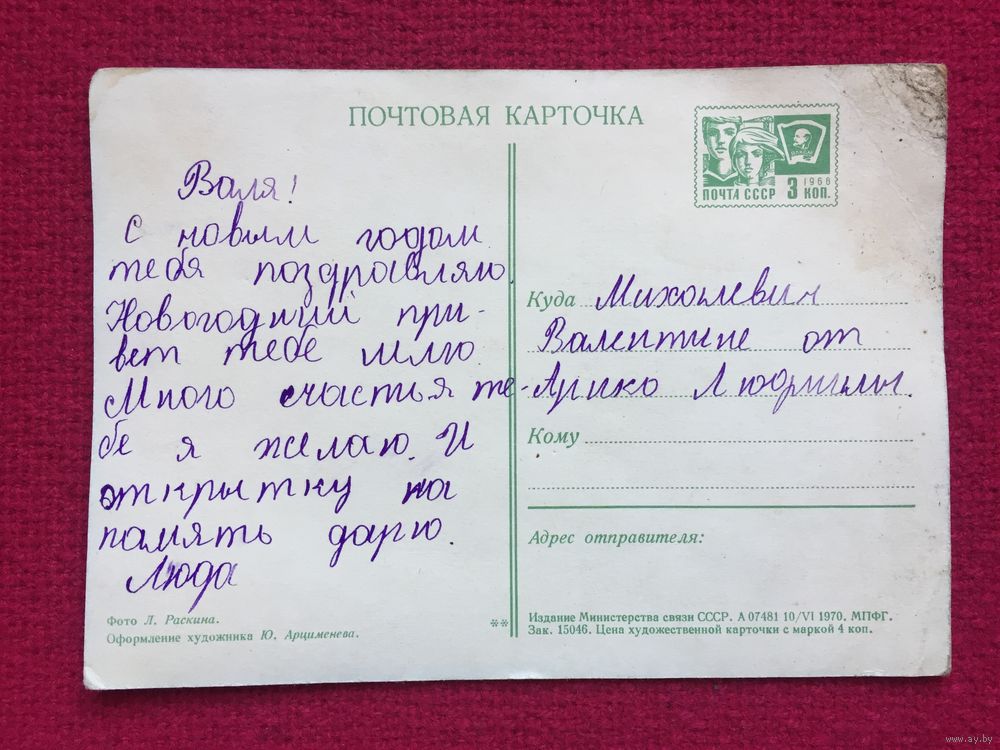 ПОЧТОВАЯ КАРТОЧКА
ВЛКСМ
1966
ПОЧТА СССР 3 КОП.
Валя!
С новым годом
тебя поздравляю.
Новогодний при-
вет тебе шлю
Много счастья те-
бе я желаю. И
открытку на
память дарю.
Люда
Куда Михолевич
Валентине от
Арико Людмилы.
Кому
Адрес отправителя:
Фото Л. Раскина.
Оформление художника Ю. Арцименева.
**
Издание Министерства связи СССР. А 07481 10/VI 1970. МПФГ.
Зак. 15046. Цена художественной карточки с маркой 4 коп.
www.ay.by